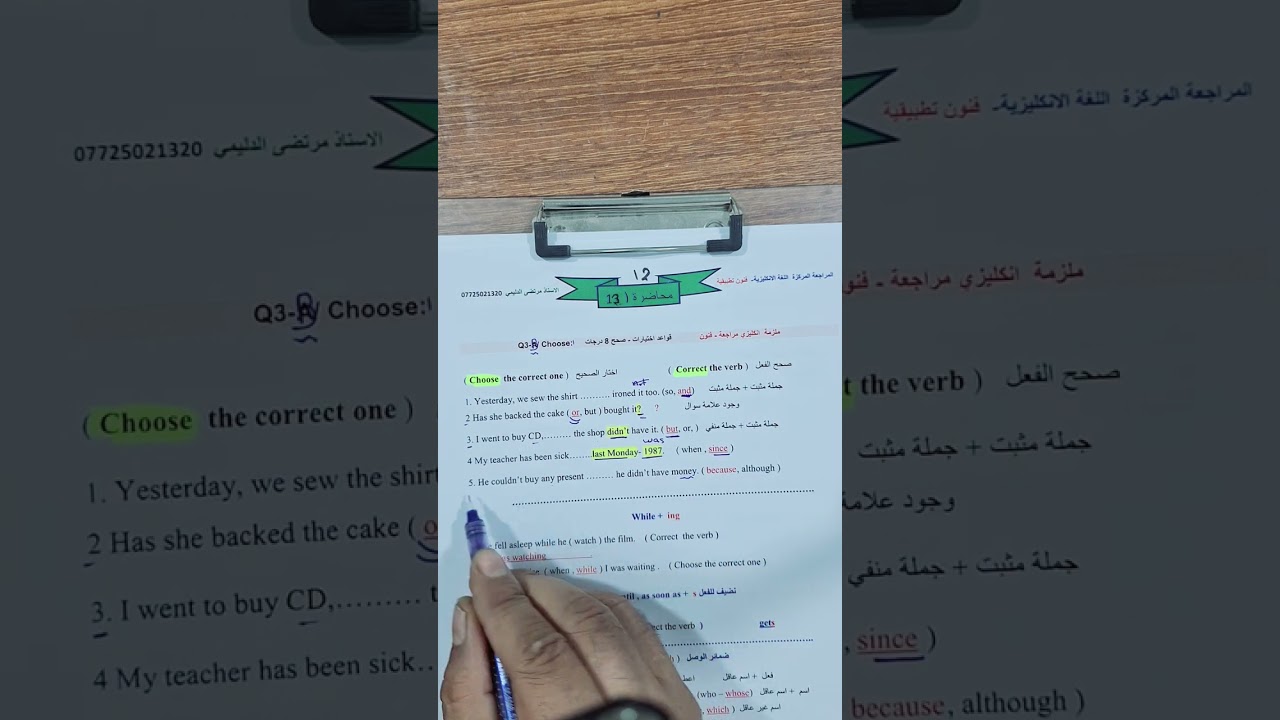 المراجعة المركزة اللغة الانكليزية- فنون تطبيقية
12
محاضرة ( 13
الاستاذ مرتضى الدليمي 07725021320
ملزمة انكليزي مراجعة - فنون
قواعد اختيارات - صحح 8 درجات
Q3-B/ Choose:
( Choose the correct one ) اختار الصحيح ( Correct the verb ) صحح الفعل
1. Yesterday, we sew the shirt .......... ironed it too. (so, and) جملة مثبت + جملة مثبت
2 Has she backed the cake ( or, but ) bought it? ? وجود علامة سوال
3. I went to buy CD,......... the shop didn't have it. ( but, or, ) جملة مثبت + جملة منفي
was
4 My teacher has been sick.......last Monday- 1987. ( when , since )
5. He couldn't buy any present ......... he didn't have money. ( because, although )
While + ing
fell asleep while he ( watch ) the film. ( Correct the verb )
watching
( when , while ) I was waiting . ( Choose the correct one )
, as soon as + s تضيف للفعل
the verb ) gets
ضمائر الوصل
فعل + اسم عاقل
(who – whose) اسم + اسم عاقل
which ) اسم غير عاقل